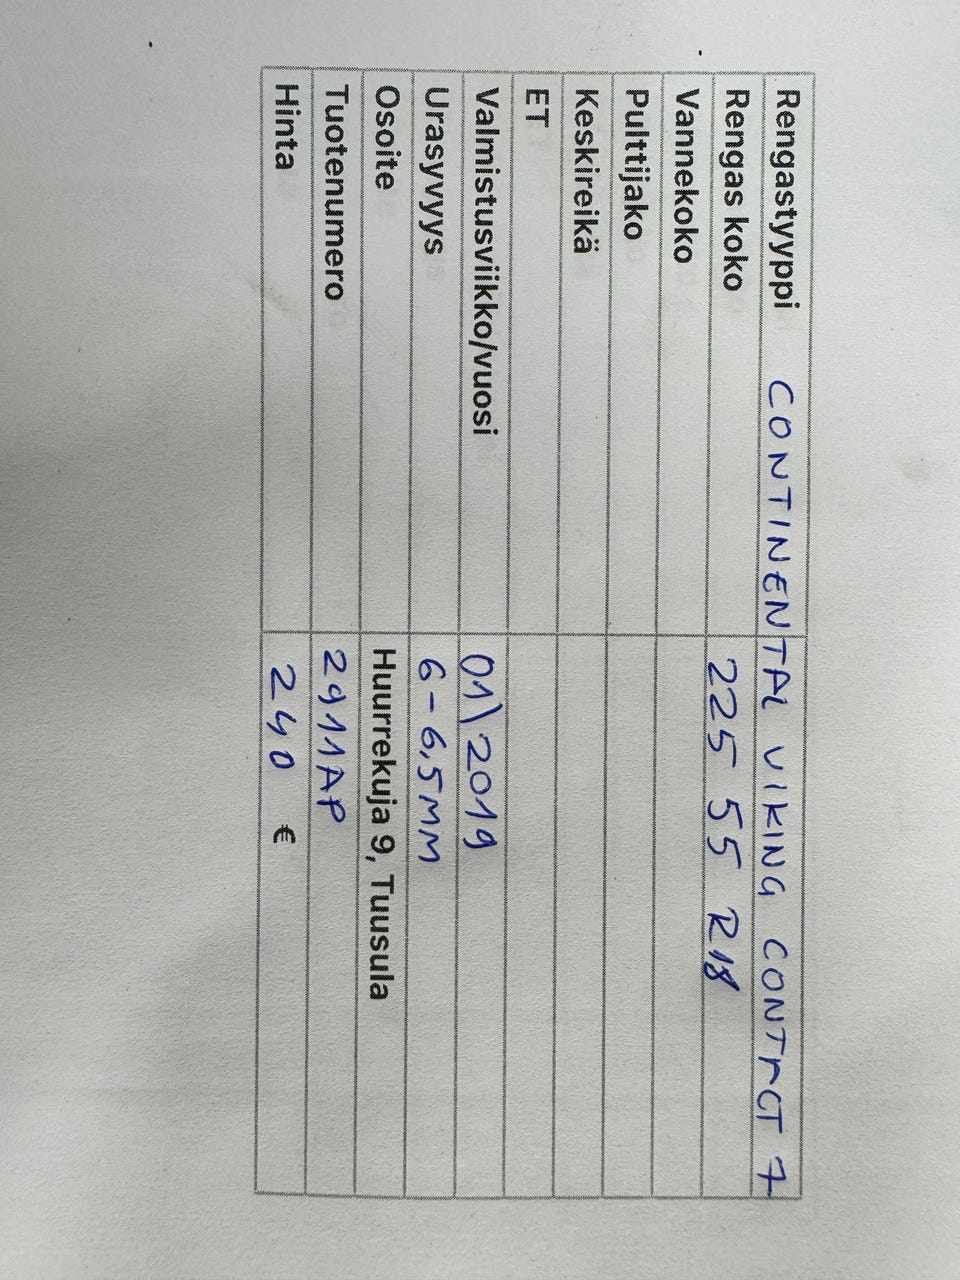 Rengastyyppi CONTINENTAL VIKING CONTRCT 7
Rengas koko 225 55 R18
Vannekoko
Pulttijako
Keskireikä
ET
Valmistusviikko/vuosi 01\2019
Urasyvyys 6-6,5MM
Osoite Huurrekuja 9, Tuusula
Tuotenumero 2911AP
Hinta 240 €